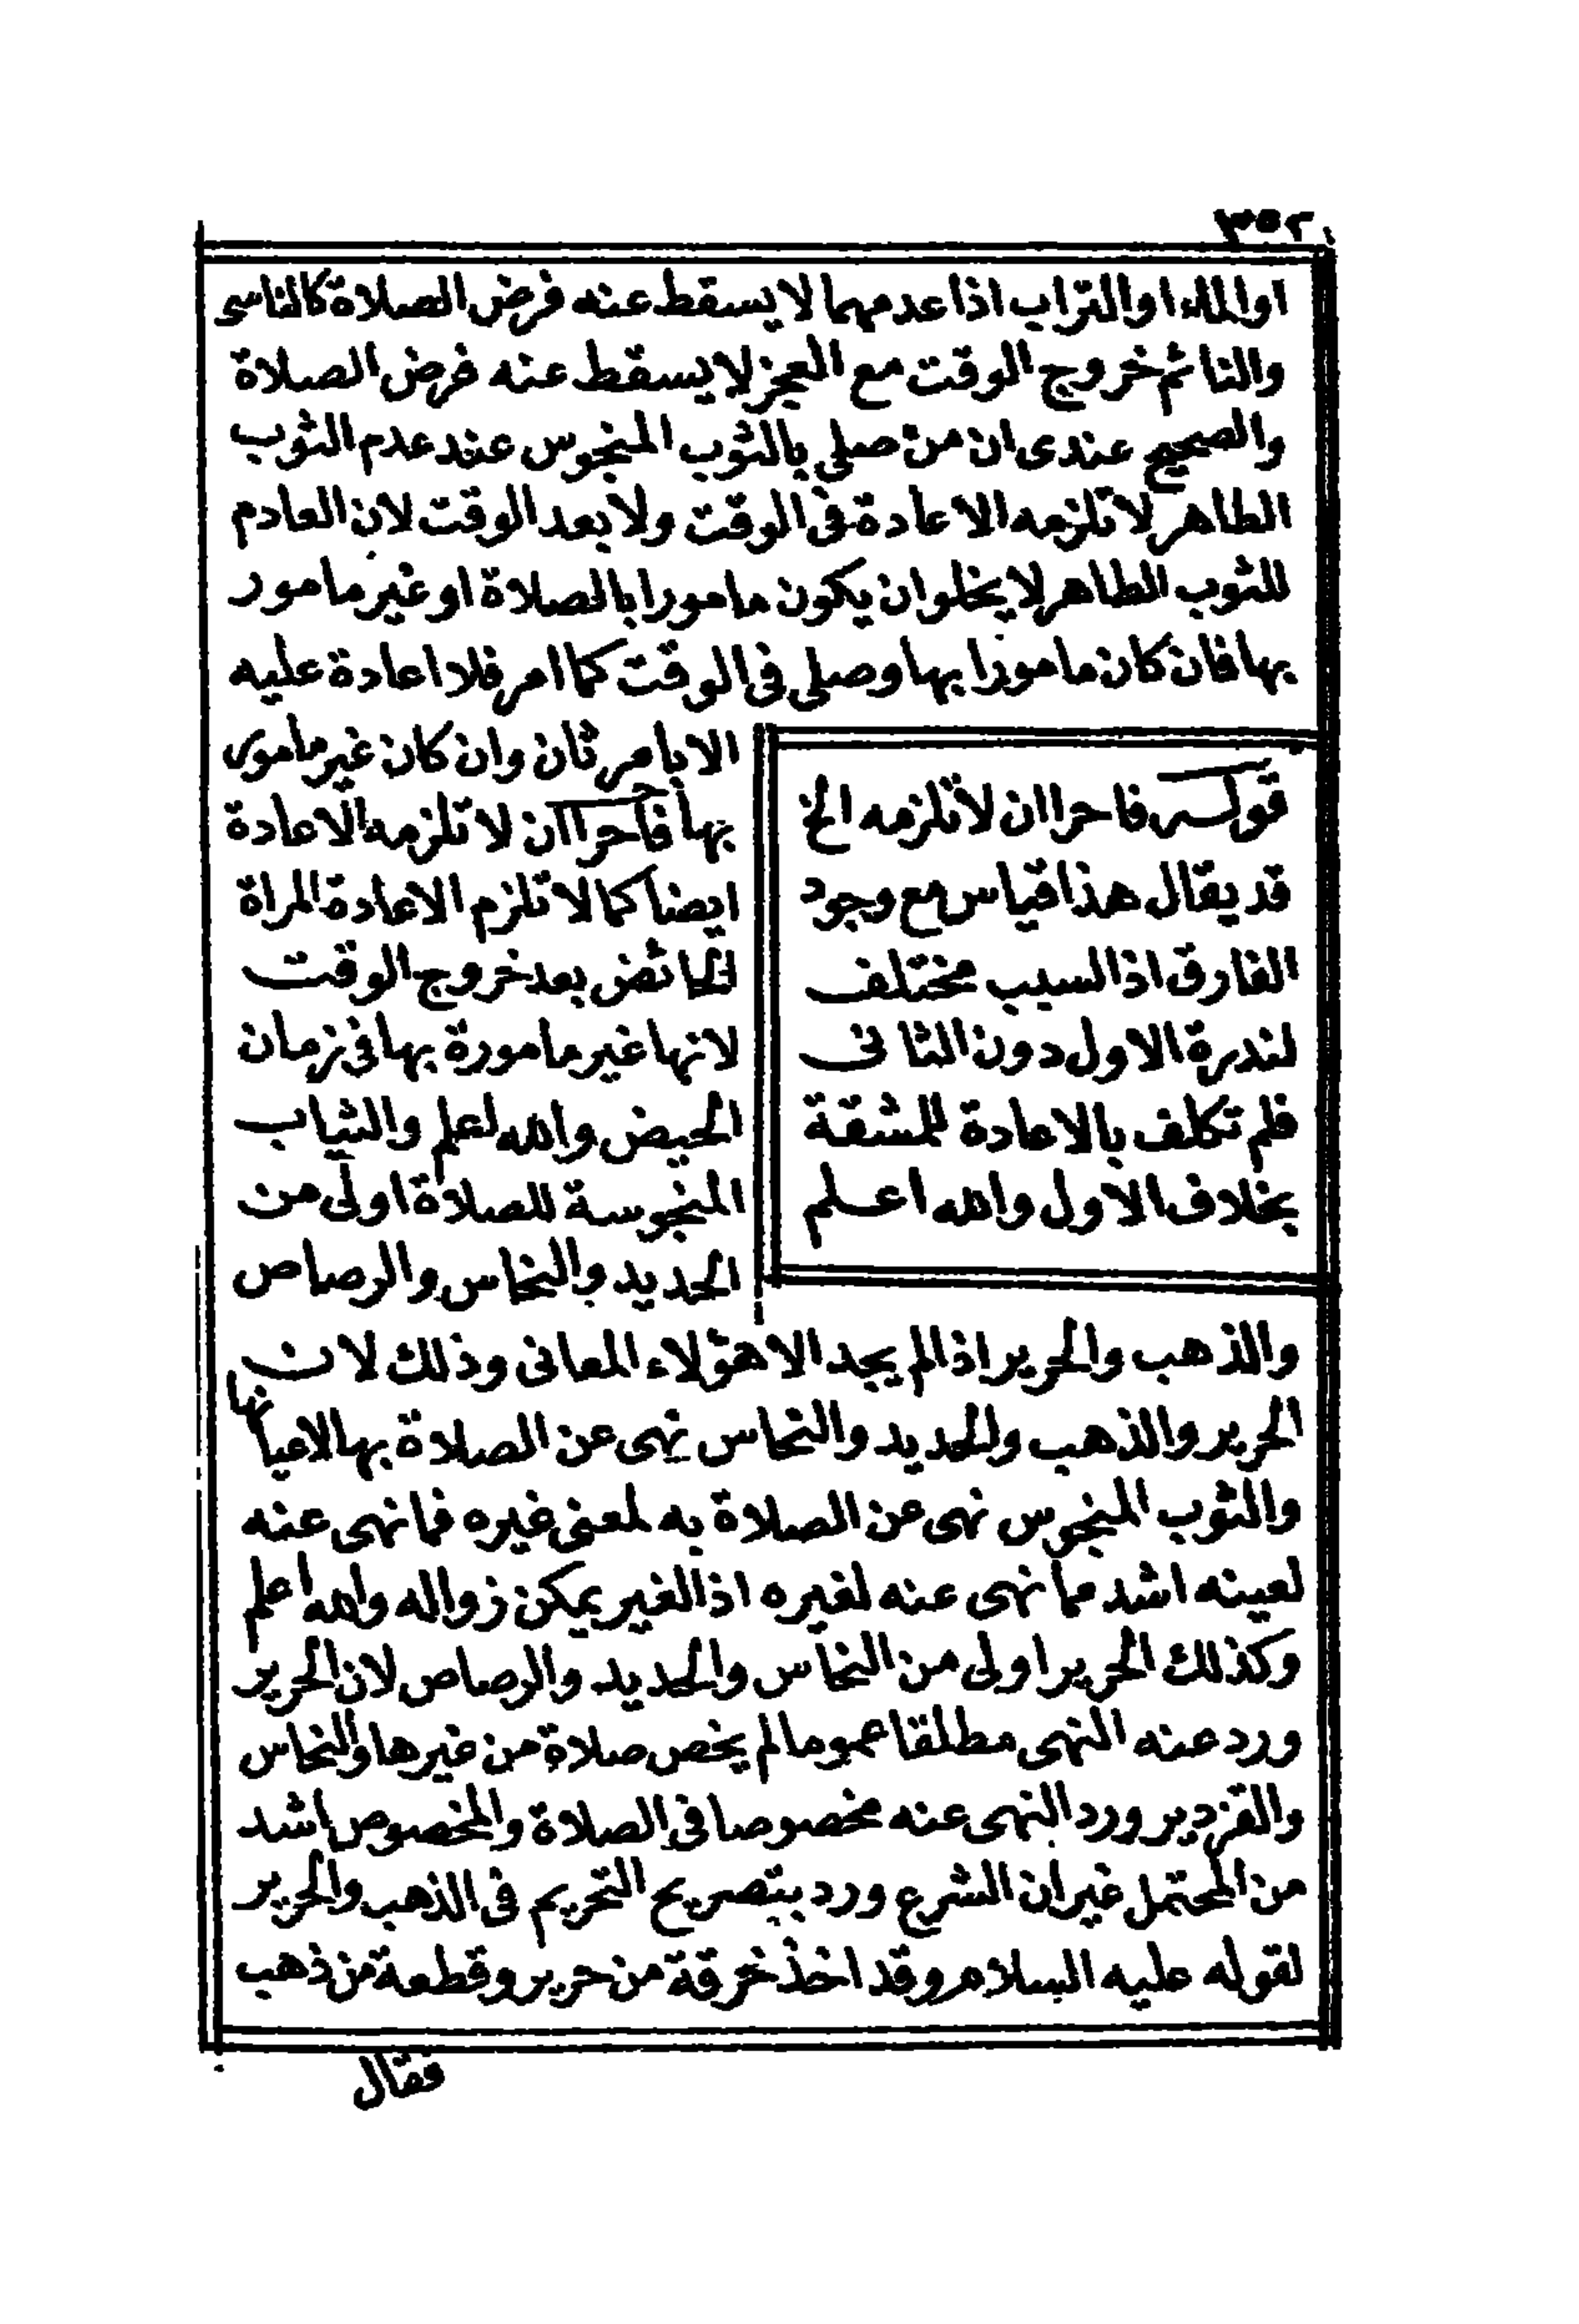 ٣٥٢
او الماء او التراب اذا عدمهما لا يسقط عنه فرض الصلاة كالناسى
والنائم خروج الوقت مع العجز لا يسقط عنه فرض الصلاة
والصحيح عندى ان من صلى بالثوب المنجوس عند عدم الثوب
الطاهر لا تلزمه الاعادة فى الوقت ولا بعد الوقت لان العادم
للثوب الطاهر لا يخلو ان يكون مامورا بالصلاة او غير مامور
بها فان كان مامورا بها وصلى فى الوقت كما امر فلا اعادة عليه
الا بامر ثان وان كان غير مامور
بها فاحرا ان لا تلزمه الاعادة
ايضا كما لا تلزم الاعادة المراة
الحائض بعد خروج الوقت
لانها غير مامورة بها فى زمان
الحيض والله اعلم والثياب
المنجوسة للصلاة اولى من
الحديد والنحاس والرصاص
قوله فاحرا ان لا تلزمه الخ
قد يقال هذا قياس مع وجود
الفارق اذ السبب مختلف
لندرة الاول دون الثانى
فلم تكلف بالاعادة للمشقة
بخلاف الاول والله اعلم
والذهب والحرير اذا لم يجد الا هؤلاء المعانى وذلك لان
الحرير والذهب والحديد والنحاس نهى عن الصلاة بها لاعيانها
والثوب المنجوس نهى عن الصلاة به لمعنى غيره فما نهى عنه
لعينه اشد مما نهى عنه لغيره اذ الغير يمكن زواله والله اعلم
وكذلك الحرير اولى من النحاس والحديد والرصاص لان الحرير
ورد عنه النهى مطلقا عموما لم يخص صلاة من غيرها والنحاس
والقزدير ورد النهى عنه مخصوصا فى الصلاة والمخصوص اشد
من المحتمل غير ان الشرع ورد بتصريح التحريم فى الذهب والحرير
لقوله عليه السلام وقد اخذ خرقة من حرير وقطعة من ذهب
فقال